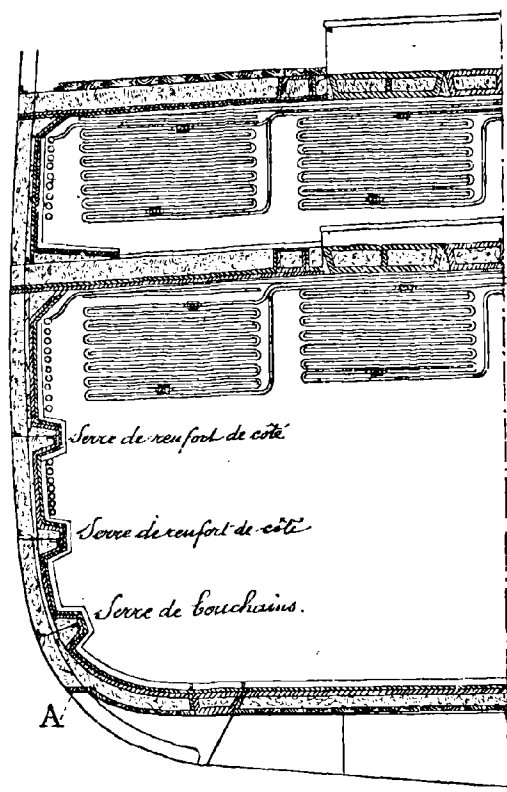 Serre de renfort de côté
Serre de renfort de côté
Serre de bouchains.
A